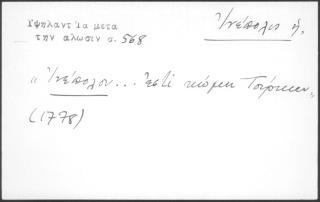 Υψηλαντ Τα μετα
την αλωσιν σ. 568
Ἰνέπολις ἡ,
"Ἰνέπολον... ἐστὶ κώμη Τούρκων"
(1778)